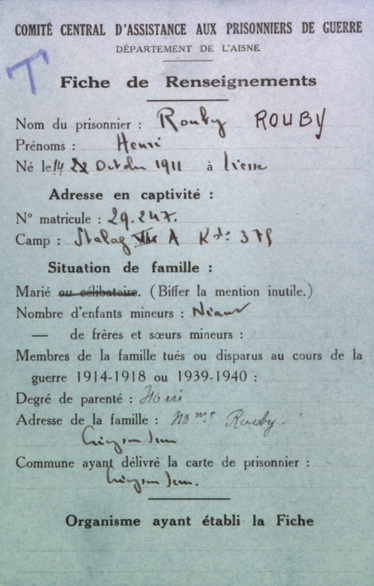 COMITÉ CENTRAL D'ASSISTANCE AUX PRISONNIERS DE GUERRE
DÉPARTEMENT DE L'AISNE
T
Fiche de Renseignements
Nom du prisonnier : Rouby ROUBY
Prénoms : Henri
Né le 14 Octobre 1911 à Liesse
Adresse en captivité :
N° matricule : 29.247.
Camp : Stalag A Kdo 375
Situation de famille :
Marié ou célibataire. (Biffer la mention inutile.)
Nombre d'enfants mineurs : Néant
— de frères et sœurs mineurs :
Membres de la famille tués ou disparus au cours de la
guerre 1914-1918 ou 1939-1940 :
Degré de parenté :
Adresse de la famille : Mme Rouby.
Commune ayant délivré la carte de prisonnier :
Organisme ayant établi la Fiche